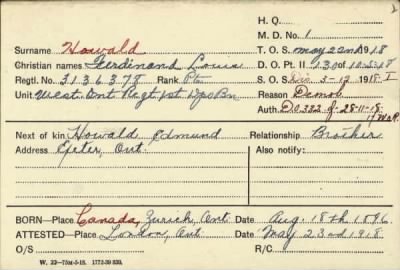 H. Q.
M. D. No. 1
Surname Howald
T. O. S. may 22nd 1918
Christian names Ferdinand Louis
D. O. Pt. II 130 of 10.5.18
Regtl. No. 3136378 Rank Pte
S. O. S. Dis 5-12 1918-I
Unit West. Ont Regt 1st Dpo Bn
Reason Demob
Auth. D.O. 322 of 28-11-18
Next of kin Howald Edmund
Relationship Brother
Address Exeter, Ont.
Also notify:
BORN—Place Canada, Zurich, Ont. Date Aug. 18th 1896
ATTESTED—Place London, Ont Date May 23rd 1918
O/S R/C